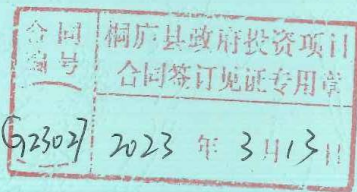 合同编号
桐庐县政府投资项目
合同签订见证专用章
G23027 2023年3月13日